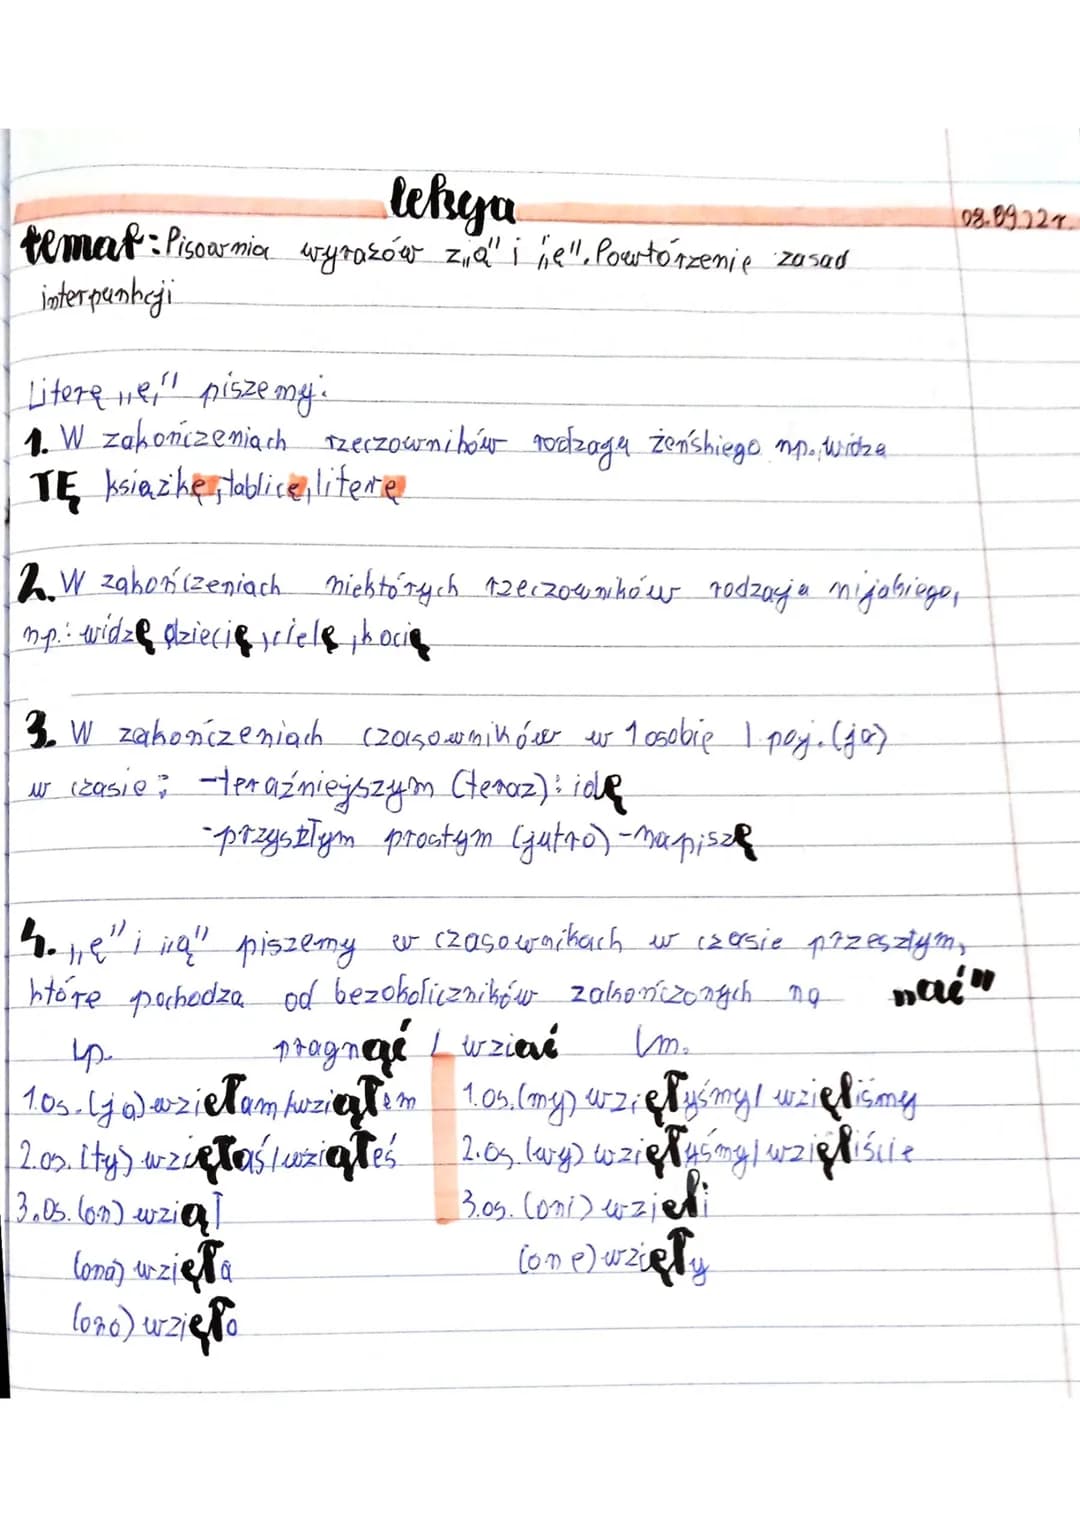 lekcja
08.09.22r.
temat: Pisownia wyrazów z „ą" i „ę". Powtórzenie zasad
interpunkcji
Literę „ę" piszemy:
1. W zakończeniach rzeczowników rodzaju żeńskiego np. widzę
TĘ książkę, tablicę, literę
2. W zakończeniach niektórych rzeczowników rodzaju nijakiego,
np.: widzę dziecię, cielę, kocię
3. W zakończeniach czasowników w 1 osobie l. poj. (ja)
w czasie: -teraźniejszym (teraz): idę
-przyszłym prostym (jutro) - napiszę
4. „ę" i „ą" piszemy w czasownikach w czasie przeszłym,
które pochodzą od bezokoliczników zakończonych na „ąć"
lp. pragnąć / wziąć lm.
1.os. (ja) wzięłam/wziąłem 1.os. (my) wzięłyśmy/wzięliśmy
2.os. (ty) wzięłaś/wziąłeś 2.os. (wy) wzięłyśmy/wzięliście
3.os. (on) wziął 3.os. (oni) wzięli
(ona) wzięła (one) wzięły
(ono) wzięło